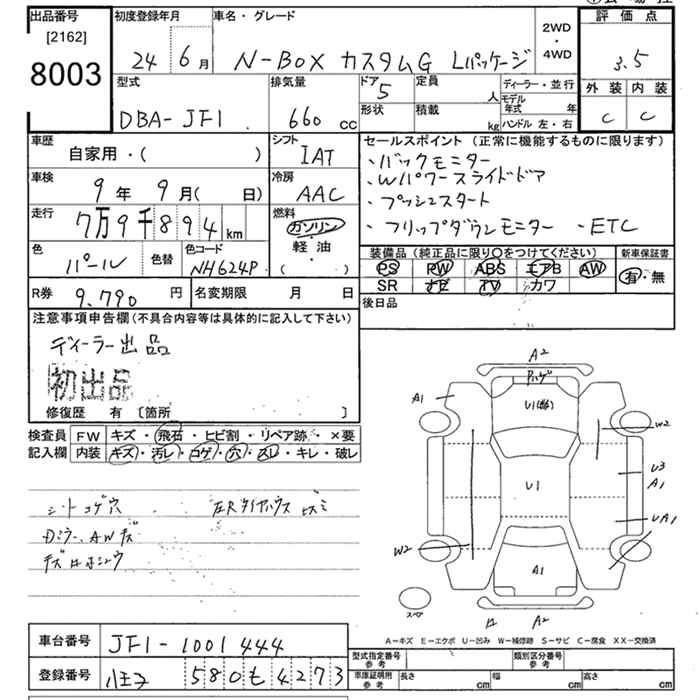 出品番号 初度登録年月 車名・グレード 評価点
[2162]
8003
24 6月 N-BOX カスタムG Lパッケージ 2WD・4WD 3.5
型式 排気量 ドア 定員 ディーラー・並行 外装 内装
DBA-JF1 660cc 5 人 モデル年式 年 C C
形状 積載 kg ハンドル 左・右
車歴 シフト セールスポイント (正常に機能するものに限ります)
自家用・( ) IAT ・バックモニター
車検 冷房 ・Wパワースライドドア
9年 9月( 日) AAC ・プッシュスタート
走行 燃料
7万9千894km ガソリン ・フリップダウンモニター ・ETC
軽油
・( )
色 色替 色コード 装備品(純正品に限り○をつけてください) 新車保証書
パール NH624P PS PW ABS エアB AW 有・無
SR ナビ TV カワ
R券 9,790円 名変期限 月 日 後日品
注意事項申告欄(不具合内容等は具体的に記入して下さい)
ディーラー出品
初出品
修復歴 有 〔箇所 〕
検査員 FW キズ・飛石・ヒビ割・リペア跡・×要
記入欄 内装 キズ・汚レ・コゲ・穴・スレ・キレ・破レ
シート コゲ穴
Dミラー、AWキズ
A2
A1
U1
W2
U3
A1
UA1
U1
W2
A1
スペア
A2
A－キズ E－エクボ U－凹み W－補修跡 S－サビ C－腐食 XX－交換済
車台番号 JF1-1001444
型式指定番号 参考 類別区分番号 参考
登録番号 八王子 580も4273
車庫証明用 参考 長さ cm 幅 cm 高さ cm